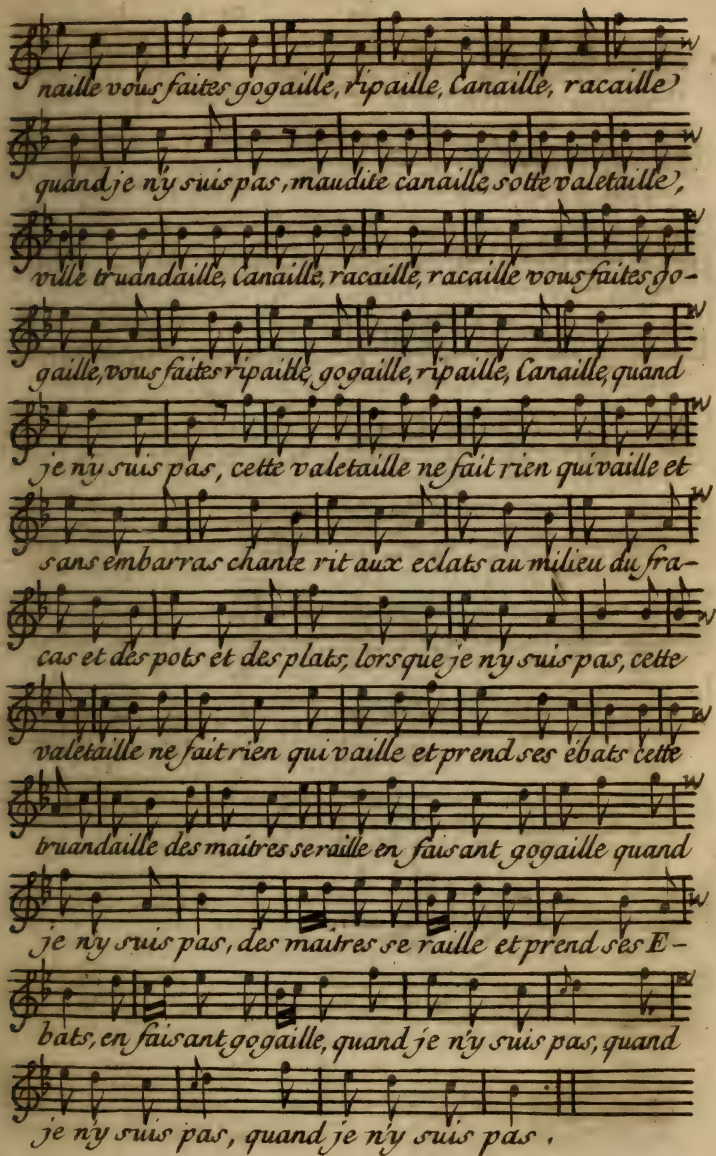 naille vous faites gogaille, ripaille, Canaille, racaille
quand je n'y suis pas, maudite canaille, sotte valetaille,
ville truandaille, Canaille, racaille, racaille vous faites go-
gaille, vous faites ripaille, gogaille, ripaille, Canaille, quand
je n'y suis pas, cette valetaille ne fait rien qui vaille et
sans embarras chante rit aux eclats au milieu du fra-
cas et des pots et des plats, lorsque je n'y suis pas, cette
valetaille ne fait rien qui vaille et prend ses ébats cette
truandaille des maitres se raille en faisant gogaille quand
je n'y suis pas, des maitres se raille et prend ses E-
bats, en faisant gogaille, quand je n'y suis pas, quand
je n'y suis pas, quand je n'y suis pas.